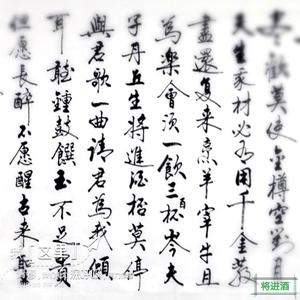 歡莫使金樽空對月
天生我材必有用千金散
盡還复来烹羊宰牛且
為樂會須一飲三百杯岑夫
子丹丘生將進酒杯莫停
與君歌一曲請君為我傾
耳聽鐘鼓饌玉不足貴
但愿長醉不愿醒古来聖
将进酒